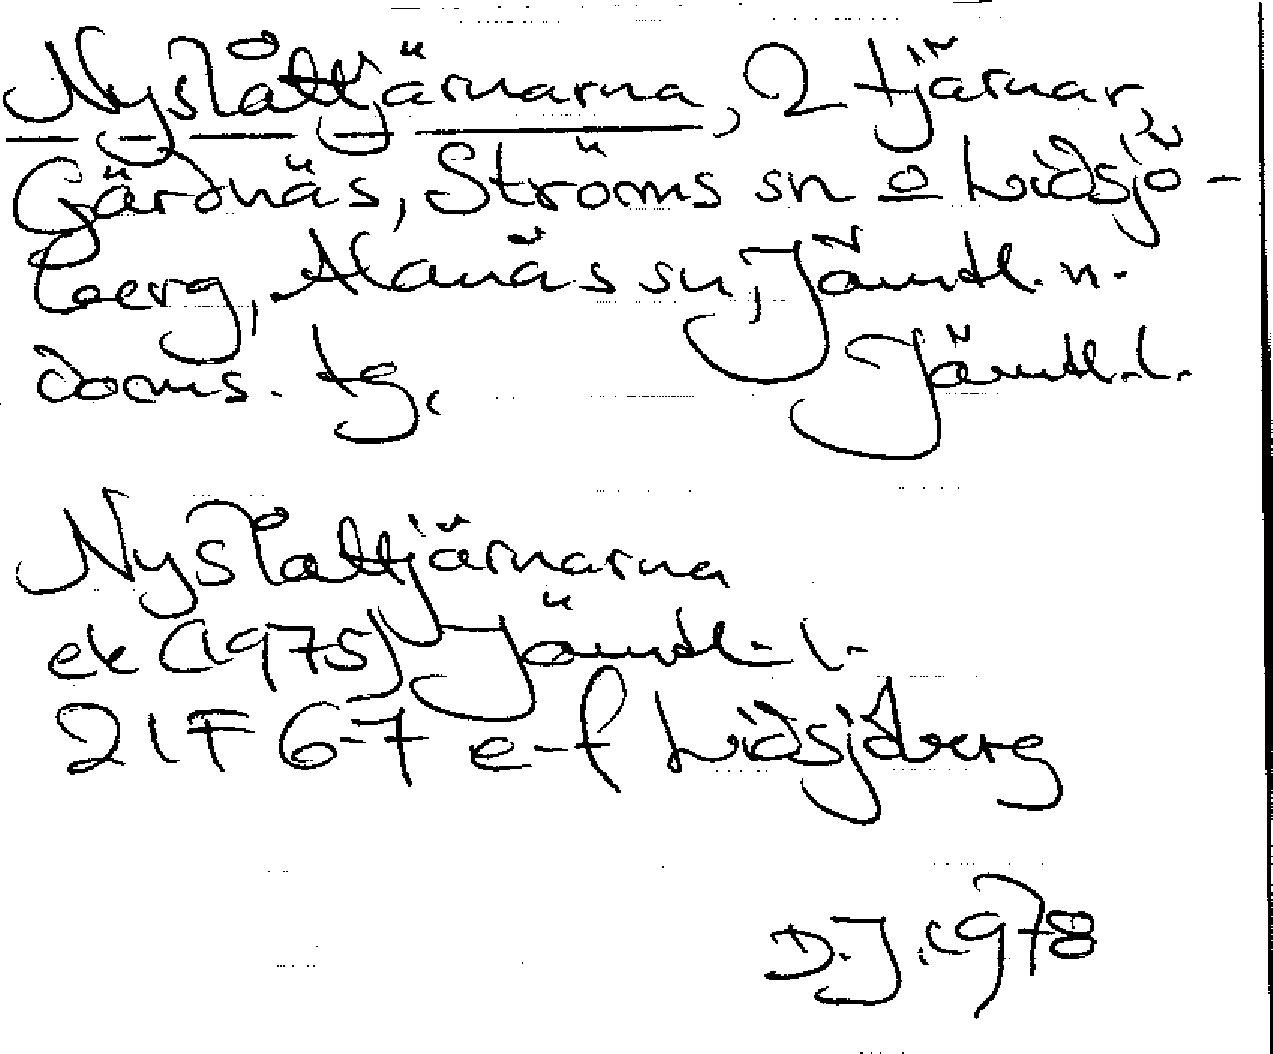 Nyslåttjärnarna, 2 tjärnar,
Gärdnäs, Ströms sn o Lidsjö-
berg, Alanäs sn, Jämtl. n.
doms. tg. Jämtl. l.
Nyslåttjärnarna
ek (1975) Jämtl. l.
21F 6-7 e-f Lidsjöberg
D.J. 1978